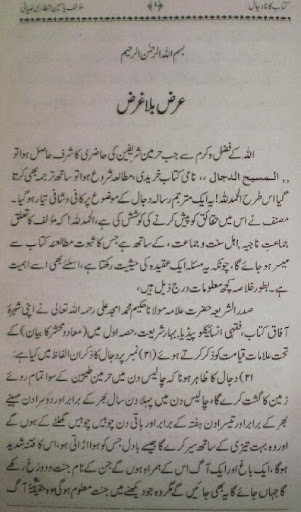 کتاب کانا دجال ﴿۶﴾ مؤلف یاسین قطاری ضیائی
بسم اللہ الرحمٰن الرحیم
عرض بلا غرض
اللہ کے فضل و کرم سے جب حرمین شریفین کی حاضری کا شرف حاصل ہوا تو
,, المسیح الدجال ,, نامی کتاب خریدی، مطالعہ شروع ہوا تو ساتھ ترجمہ بھی کرتا
گیا اس طرح الحمدللہ! یہ ایک مترجم رسالہ دجال کے موضوع پر کافی و شافی تیار ہو گیا۔
مصنف نے اس میں حقائق کو پیش کرنے کی کوشش کی ہے، الحمدللہ! کہ مؤلف کا تعلق
جماعت ناجیہ، اہل سنت و جماعت، کے ساتھ ہے جس کا ثبوت مطالعہ کتاب سے
میسر ہو جائے گا، چونکہ یہ مسئلہ ایک عقیدہ کی حیثیت رکھتا ہے، اسلئے بھی اسے اہمیت
ہے۔ بطور خلاصہ کچھ معلومات درج ذیل ہیں،
صدر الشریعہ حضرت علامہ مولانا حکیم محمد امجد علی رحمہ اللہ تعالٰی نے اپنی شہرۂ
آفاق کتاب، فقہی انسائیکلو پیڈیا، بہار شریعت، حصہ اول میں (معاد و محشر کا بیان) کے
تحت علامات قیامت کو ذکر کرتے ہوئے (۲۱) نمبر پر دجال کا ذکر ان الفاظ میں کیا ہے:
۲۱) دجال کا ظاہر ہونا کہ چالیس دن میں حرمین طیبین کے سوا تمام روئے
زمین کا گشت کرے گا، چالیس دن میں پہلا دن سال بھر کے برابر اور دوسرا دن مہینے
بھر کے برابر اور تیسرا دن ہفتہ کے برابر اور باقی دن چوبیس چوبیس گھنٹے کے ہوں گے
اور وہ بہت تیزی کے ساتھ سیر کرے گا جیسے بادل جس کو ہوا اڑاتی ہو، اس کا فتنہ شدید
ہوگا، ایک باغ اور ایک آگ اس کے ہمراہ ہوں گے جن کے نام جنت و دوزخ رکھے
گا جہاں جائے گا یہ بھی جائیں گے مگر وہ جو دیکھنے میں جنت معلوم ہوگی وہ حقیقۃً آگ